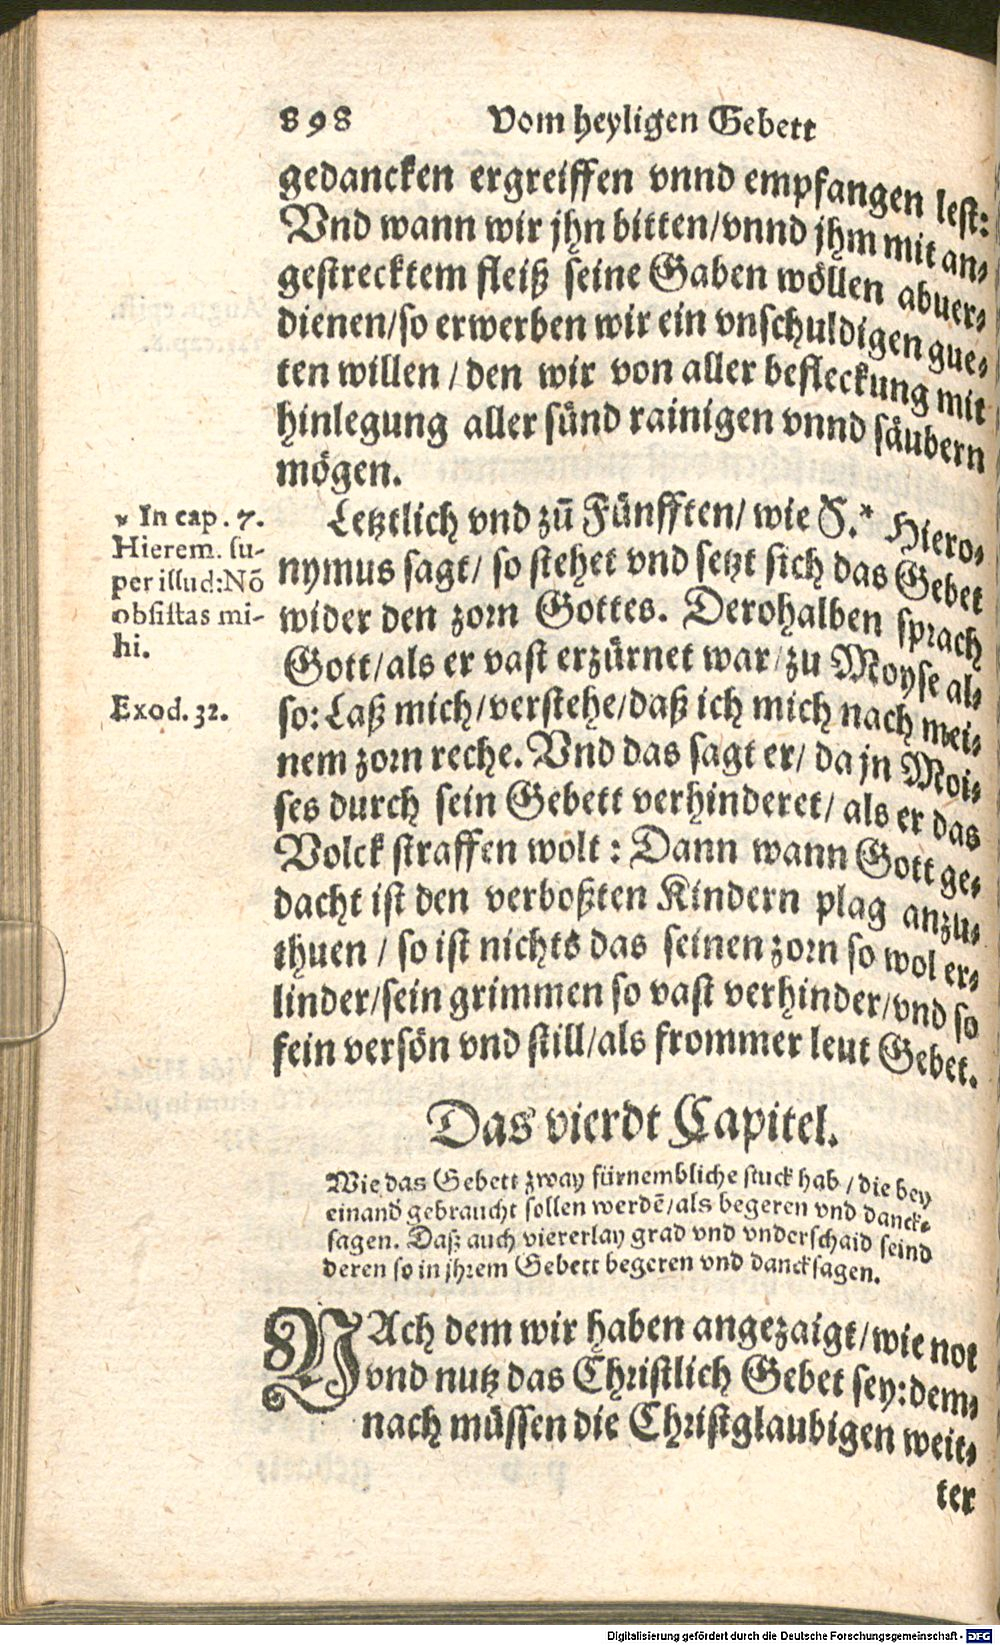 898 Vom heyligen Gebett
gedancken ergreiffen vnnd empfangen lest:
Vnd wann wir jhn bitten/vnnd jhm mit an-
gestrecktem fleiß seine Gaben wöllen abuer-
dienen/so erwerben wir ein vnschuldigen gue-
ten willen/den wir von aller befleckung mit
hinlegung aller sünd rainigen vnnd säubern
mögen.
Letztlich vnd zū Fünfften/wie S.* Hiero-
nymus sagt/so stehet vnd setzt sich das Gebet
wider den zorn Gottes. Derohalben sprach
Gott/als er vast erzürnet war/zu Moyse al-
so: Laß mich/verstehe/daß ich mich nach mei-
nem zorn reche. Vnd das sagt er/da jn Moi-
ses durch sein Gebett verhinderet/als er das
Volck straffen wolt: Dann wann Gott ge-
dacht ist den verboßten Kindern plag anzu-
thuen/so ist nichts das seinen zorn so wol er-
linder/sein grimmen so vast verhinder/vnd so
fein versön vnd still/als frommer leut Gebet.
* In cap. 7.
Hierem. su-
per illud: Nō
obsistas mi-
hi.
Exod. 32.
Das vierdt Capitel.
Wie das Gebett zway fürnembliche stuck hab/die bey
einand gebraucht sollen werdē/als begeren vnd danck-
sagen. Daß auch viererlay grad vnd vnderschaid seind
deren so in jhrem Gebett begeren vnd dancksagen.
NAch dem wir haben angezaigt/wie not
vnd nutz das Christlich Gebet sey: dem-
nach müssen die Christglaubigen weit-
ter
Digitalisierung gefördert durch die Deutsche Forschungsgemeinschaft - DFG